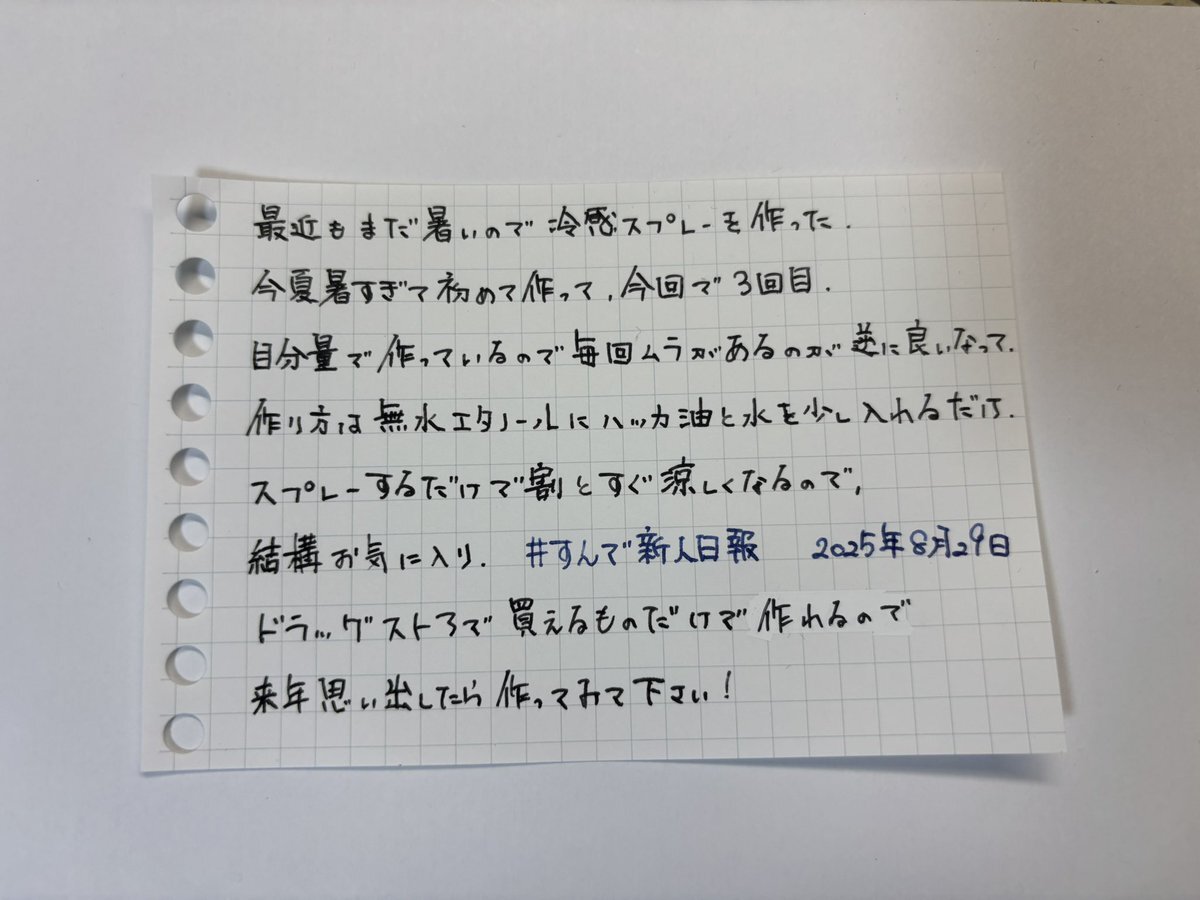 最近もまだ暑いので冷感スプレーを作った.
今夏暑すぎて初めて作って,今回で3回目.
目分量で作っているので毎回ムラがあるのが逆に良いなって.
作り方は無水エタノールにハッカ油と水を少し入れるだけ.
スプレーするだけで割とすぐ涼しくなるので,
結構お気に入り. #すんで新人日報 2025年8月29日
ドラッグストアで買えるものだけで作れるので
来年思い出したら作ってみて下さい!